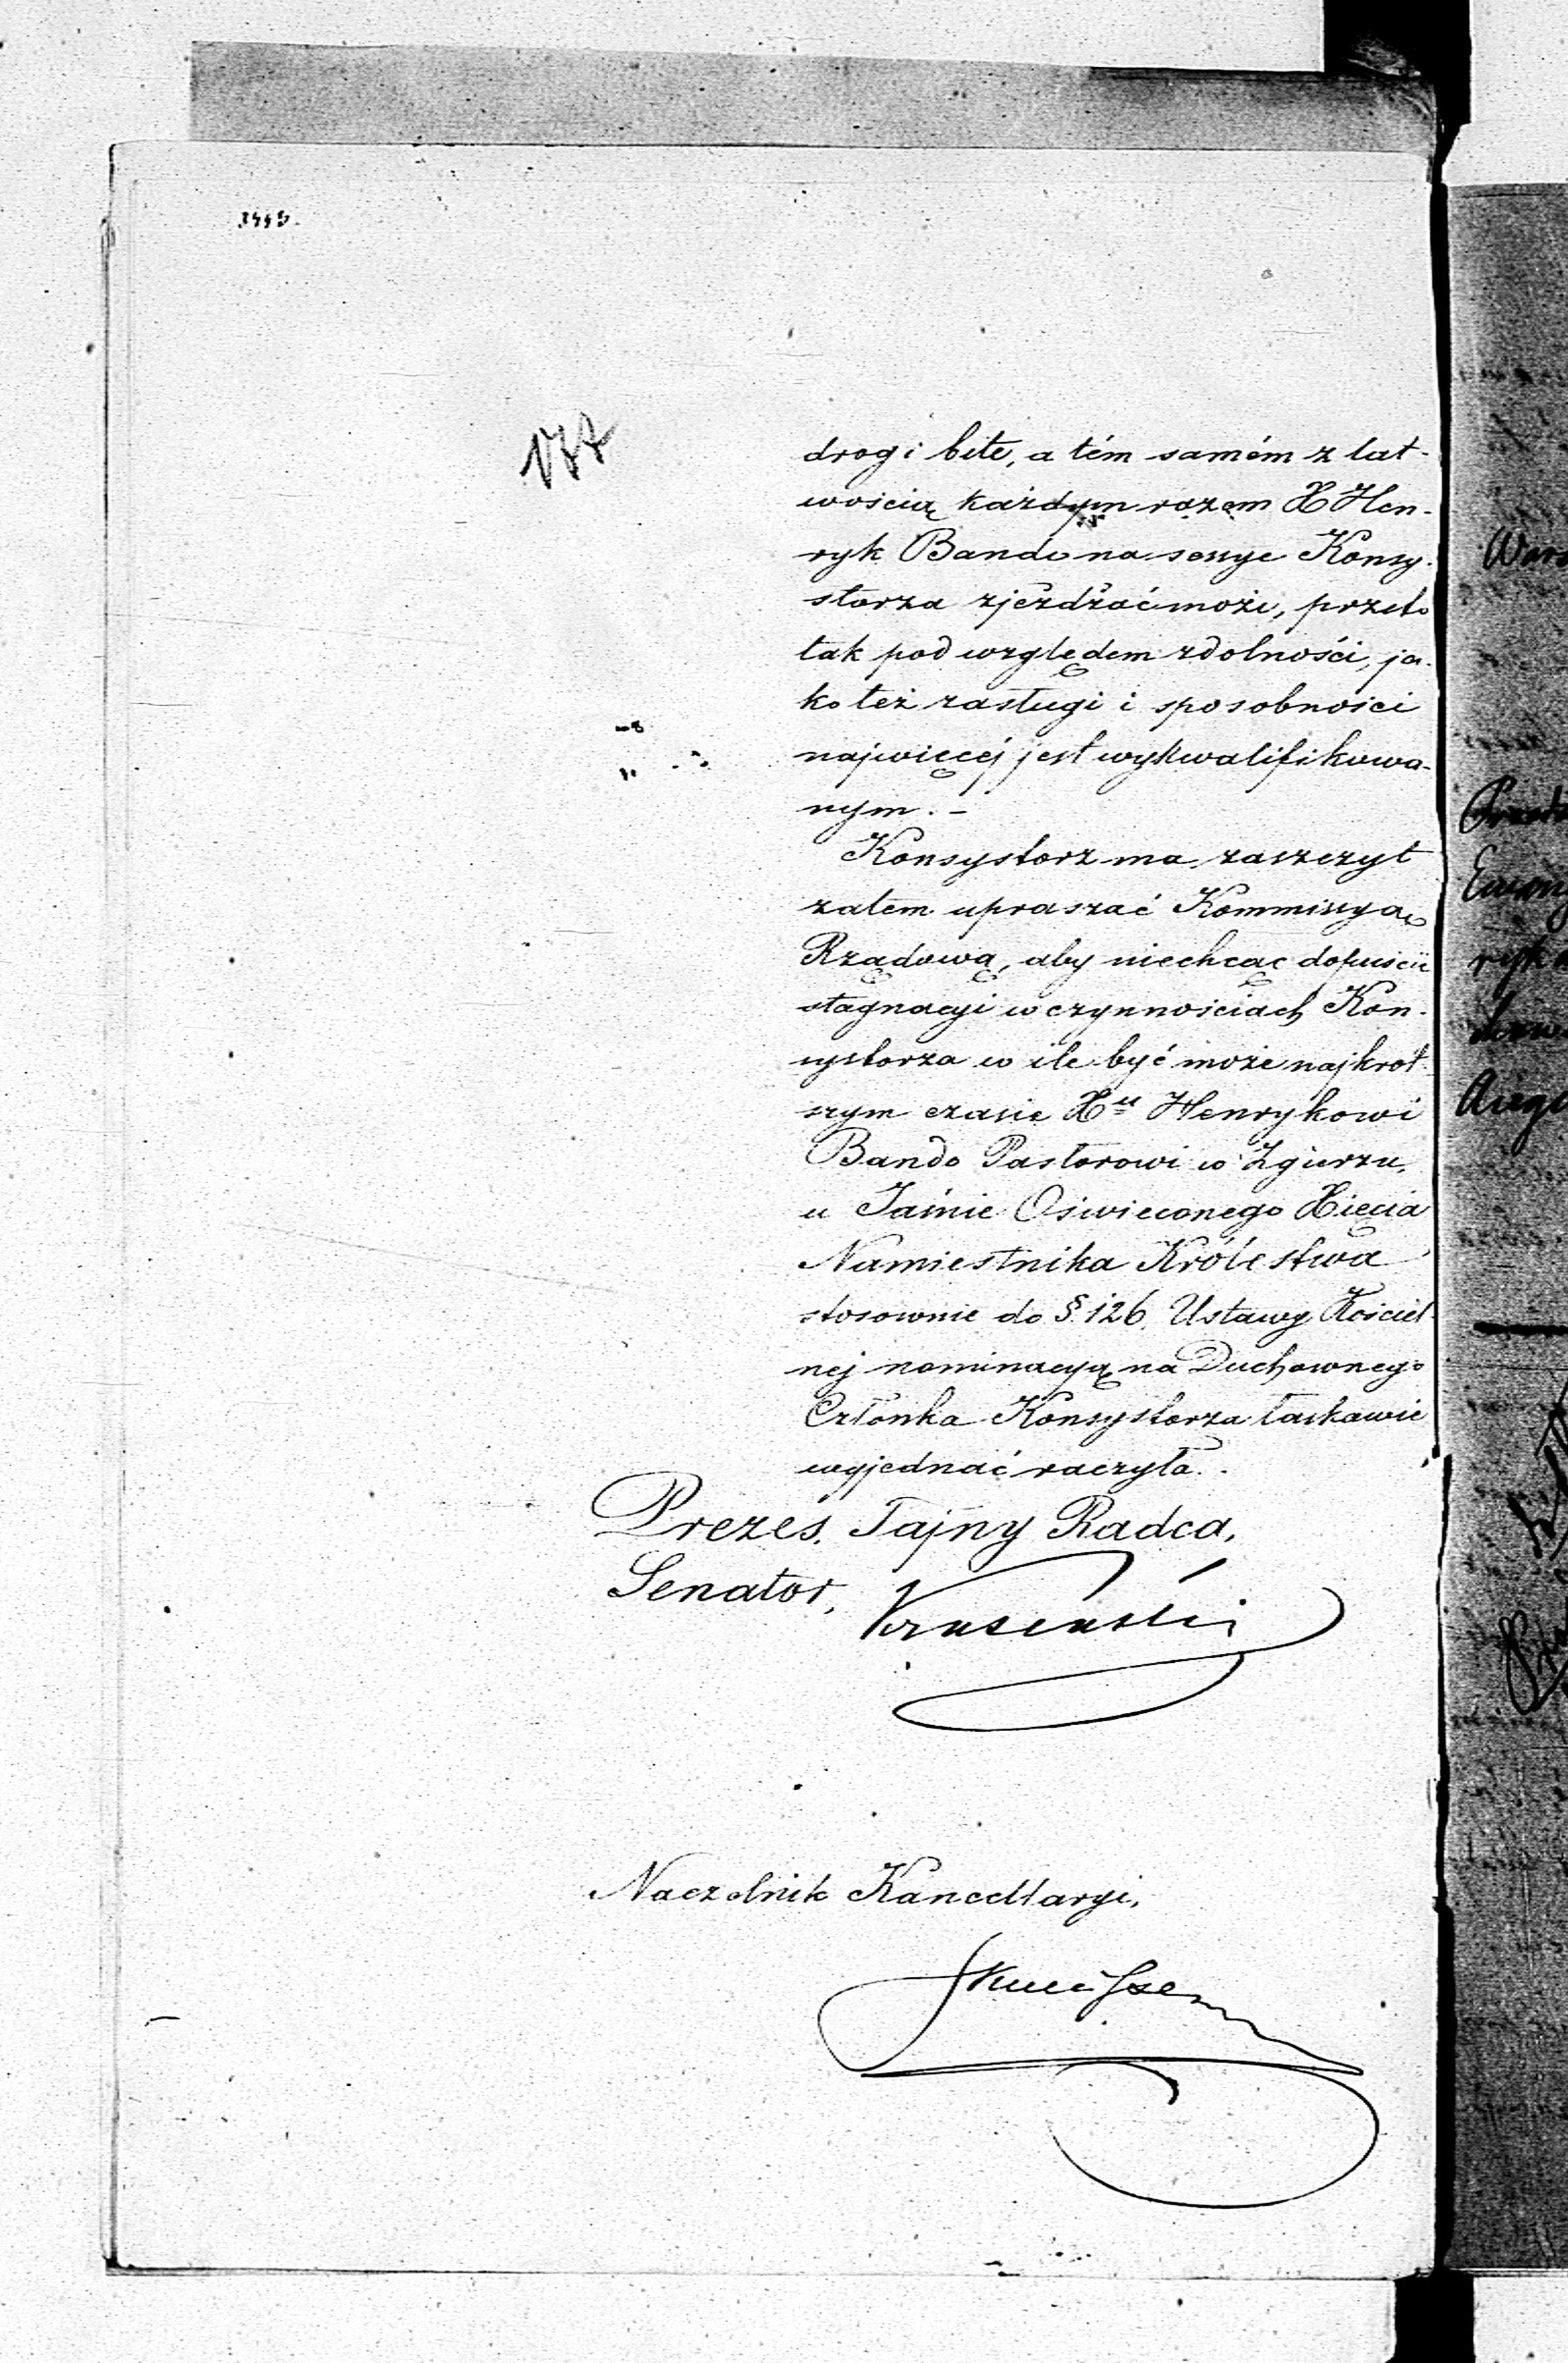 177
drogi bite, a tém samém z łat-
wością każdym razem X Hen-
ryk Bando na sessye Konsy-
storza zjeżdżać może, przeto
tak pod względem zdolności, ja-
ko też zasługi i sposobności
najwięcéj jest wykwalifikowa-
nym. -
Konsystorz ma zaszczyt
zatem upraszać Kommissyą
Rządową, aby niechcąc dopuścić
stagnacyi w czynnościach Kon-
systorza w ile być może najkrót-
szym czasie Xu Henrykowi
Bando Pastorowi w Zgierzu,
u Jaśnie Oświeconego Xięcia
Namiestnika Królestwa
stosownie do §. 126. Ustawy Kościel-
nej nominacyą na Duchownego
Członka Konsystorza łaskawie
wyjednać raczyła. .
Prezes, Tajny Radca,
Senator,
Naczelnik Kancellaryi,